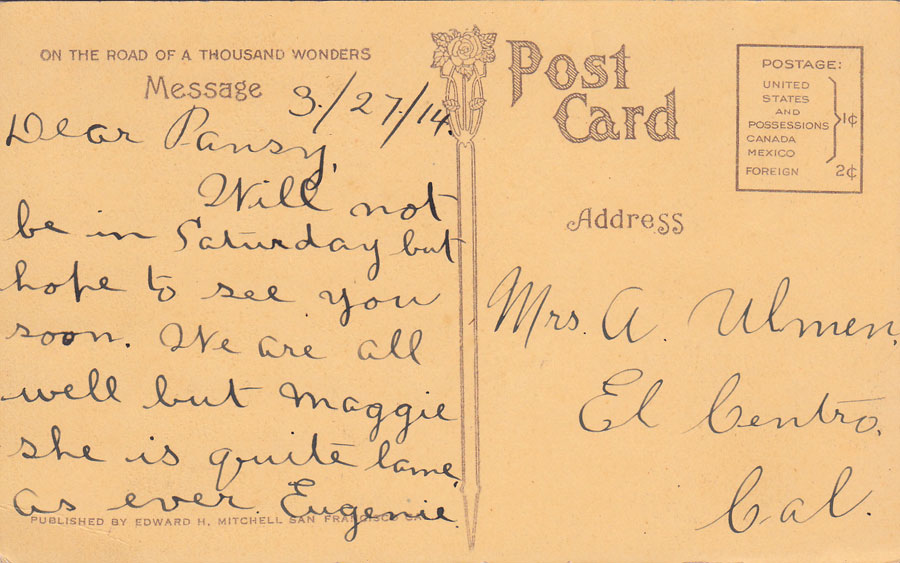 ON THE ROAD OF A THOUSAND WONDERS
Message
3./27./14.
Dear Pansy,
Will not
be in Saturday but
hope to see you
soon. We are all
well but Maggie
she is quite lame.
as ever Eugenie.
PUBLISHED BY EDWARD H. MITCHELL SAN FRANCISCO
Post
Card
POSTAGE:
UNITED
STATES
AND
POSSESSIONS
CANADA
MEXICO
1¢
FOREIGN 2¢
Address
Mrs. A. Ulmen.
El Centro.
Cal.